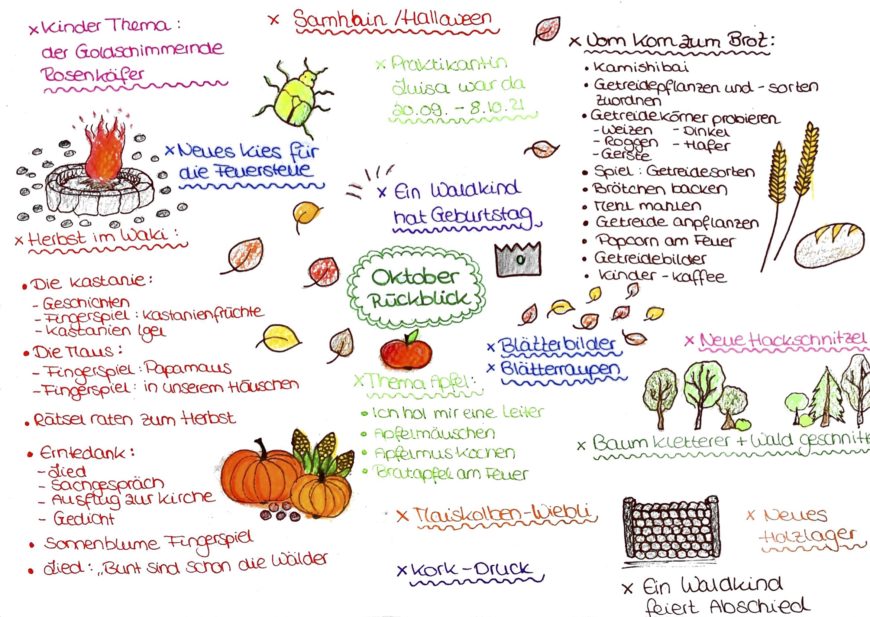 x Kinder Thema:
der Goldschimmernde
Rosenkäfer
x Samhain/Halloween
x Praktikantin
Luisa war da
20.09. - 8.10.21
x Vom Korn zum Brot:
• Kamishibai
• Getreidepflanzen und -sorten
zuordnen
• Getreidekörner probieren
- Weizen - Dinkel
- Roggen - Hafer
- Gerste
• Spiel: Getreidesorten
• Brötchen backen
• Mehl mahlen
• Getreide anpflanzen
• Popcorn am Feuer
• Getreidebilder
• Kinder-Kaffee
x Neues Kies für
die Feuerstelle
x Ein Waldkind
hat Geburtstag
Oktober
Rückblick
x Herbst im Waki:
• Die Kastanie:
- Geschichten
- Fingerspiel: Kastanienfrüchte
- Kastanien Igel
• Die Maus:
- Fingerspiel: Papamaus
- Fingerspiel: in unserem Häuschen
• Rätsel raten zum Herbst
• Erntedank:
- Lied
- Sachgespräch
- Ausflug zur Kirche
- Gedicht
• Sonnenblume Fingerspiel
• Lied: „Bunt sind schon die Wälder
x Thema Apfel:
• Ich hol mir eine Leiter
• Apfelmäuschen
• Apfelmus kochen
• Bratapfel am Feuer
x Blätterbilder
x Blätterraupen
x Neue Hackschnitzel
x Baum kletterer + Wald geschnitte
x Maiskolben-Wiebli
x Kork-Druck
x Neues
Holzlager
x Ein Waldkind
feiert Abschied